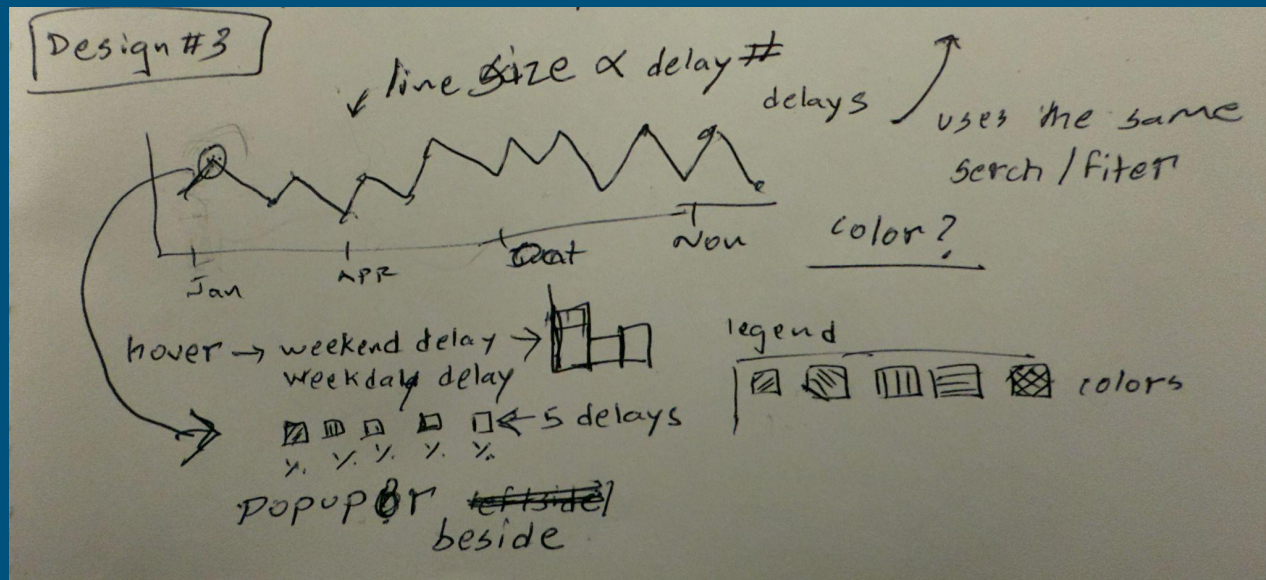 Design #3
line size ∝ delay #
delays
uses the same
serch / fiter
color?
Jan
APR
Nov
hover → weekend delay →
weekday delay
← 5 delays
%. %. %. %. %.
popup Or
beside
legend
colors